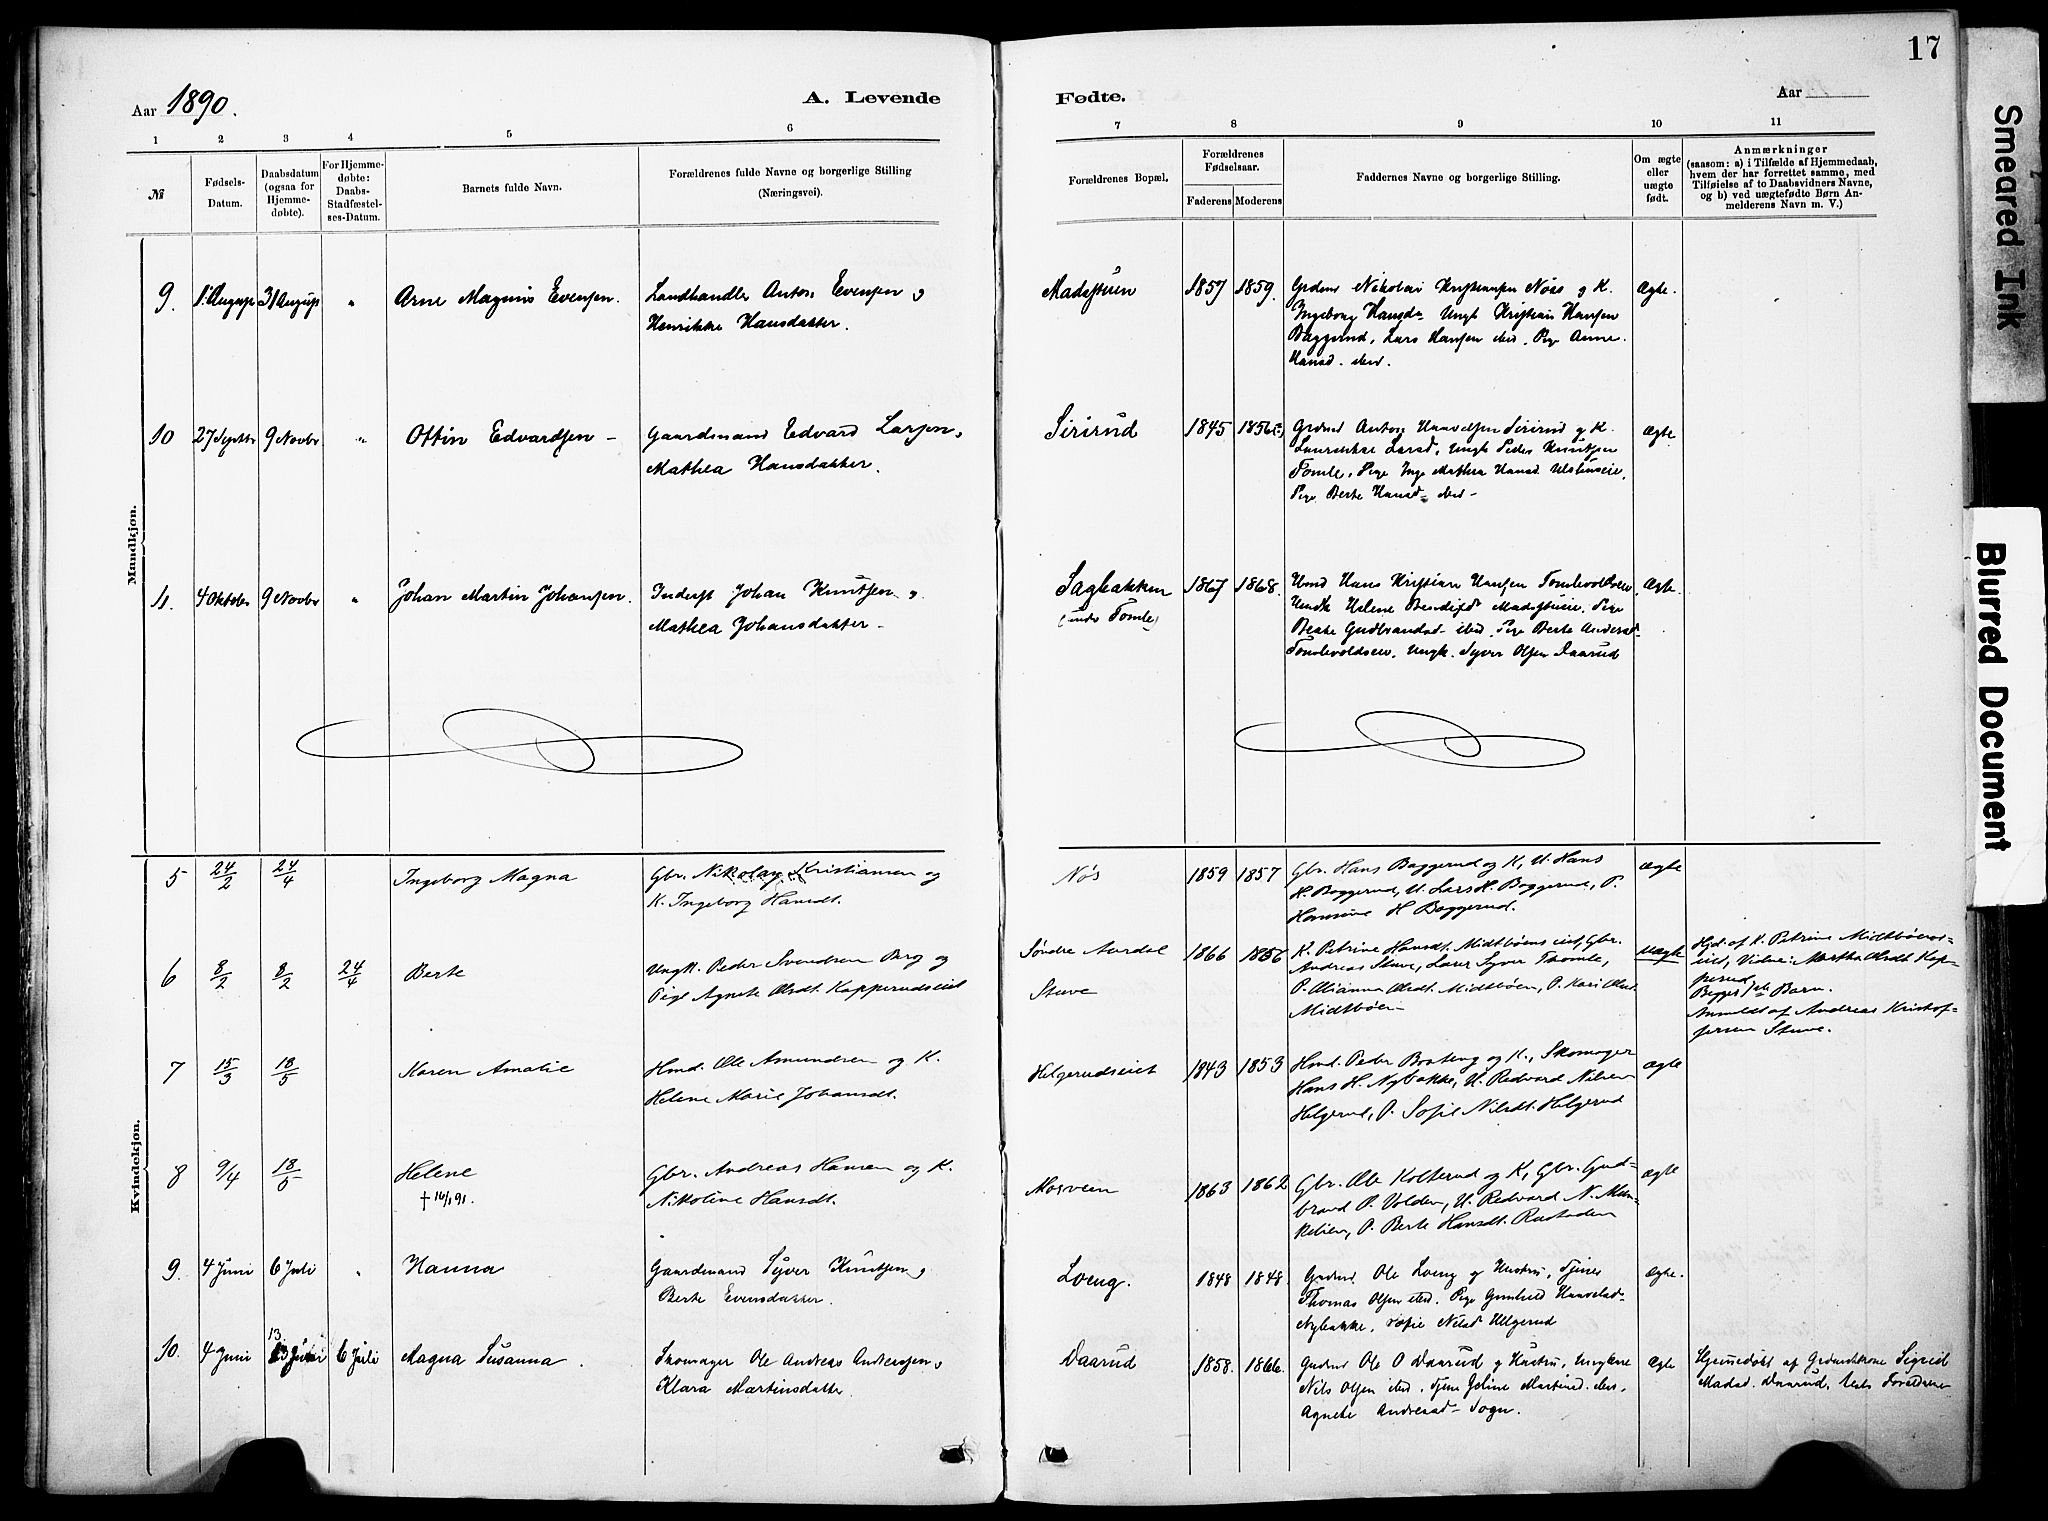 17
Aar 1890.
A. Levende
Fødte.
Aar
1 2 3 4 5 6 7 8 9 10 11
№
Fødsels-
Datum.
Daabsdatum
(ogsaa for
Hjemme-
døbte).
For Hjemme-
døbte:
Daabs-
Stadfæstel-
ses-Datum.
Barnets fulde Navn.
Forældrenes fulde Navne og borgerlige Stilling
(Næringsvei).
Forældrenes Bopæl.
Forældrenes
Fødselsaar.
Faderens
Moderens
Faddernes Navne og borgerlige Stilling.
Om ægte
eller
uægte
født.
Anmærkninger
(saasom: a) i Tilfælde af Hjemmedaab,
hvem der har forrettet samme, med
Tilføielse af to Daabsvidners Navne,
og b) ved uægtefødte Børn An-
melderens Navn m. V.)
Mandkjøn.
9. 1. August 31 August " Arne Magnus Evensen. Landhandler Anton Evensen og
Henrikke Hansdatter.
Madsstuen 1857 1859. Grdmd Nikolai Kristiansen Nøss og K.
Ingeborg Hansdr Ungk Kristian Hansen
Baggerud, Lars Hansen ibid. Pige Anne
Hansd. ibid.
Ægte.
10 27 Septbr 9 Novbr " Ottin Edvardsen - Gaardmand Edvard Larsen og
Mathea Hansdatter.
Sirirud 1845 1856 Grdmd Anton Sirirud og K.
Larsd, Ungk Peder Knutsen
Tomle, Pige Inge Mathea Hansd
Pige Berte Hansd ibid -
Ægte.
11. 4 Oktober 9 Novbr " Johan Martin Johansen. Inderst Johan Knutsen og
Mathea Johansdatter -
Sagbakken
(under Tomle)
1867 1868. Hmd Hans Kristian Hansen Tomlevoldseie,
Helene Madsstueie, Pige
Beate Gudbrandsd ibid, Pige Berte Andersd
Tomlevoldseie, Ungk. Syver Olsen Daarud
Ægte.
Kvindekjøn.
5 24/2 24/4 Ingeborg Magna Gbr. Nikolay Kristiansen og
K. Ingeborg Hansdt.
Nøs 1859 1857 Gbr. Hans Baggerud og K, U. Hans
H. Baggerud, U. Lars H. Baggerud, P.
Hansine H Baggerud.
ægte
6 8/2 8/2 24/4 Berte Ungk. Peder Svendsen Berg og
Pige Agnete Olsdt Kopperudseiet
Søndre Aurdal
Stuve
1866 1856 K. Petrine Hansdt. Midtbøenseiet, Gbr.
Andreas Stuve, Lærer Syver Thomle,
P. Olianna Olsdt. Midtbøen, P. Kari Olsdt.
Midtbøen
uægte
Hjd. af K. Petrine Midtbøens-
eiet, Vidne: Martha Olsdt Kop-
perud
Begges 1ste Barn.
Anmeldt af Andreas Kristof-
fersen Stuve.
7 15/3 18/5 Karen Amalie Hmd. Ole Amundsen og K.
Helene Marie Johansdt.
Helgerudseiet 1843 1853 Hmd. Peder Braateng og K., Skomager
Hans H. Nybakke, U. Redvard Nilsen
Helgerud, P. Sofie Nilsdt. Helgerud
ægte
8 9/4 18/5 Helene
† 16/1 91.
Gbr. Andreas Hansen og K.
Nikoline Hansdt.
Mosveen 1863 1862 Gbr. Ole Kolterud og K, Gbr. Gud-
brand P. Volden, U. Redvard N. Mun-
kelien, P. Berte Hansdt. Rustaden
ægte
9. 4 Juni 6 Juli " Hanna Gaardmand Syver Knutsen og
Berte Evensdatter.
Loeng. 1848 1848. Grdmd. Ole Loeng og Hustru, Tjener
Thomas Olsen ibid. Pige Gunhild Haavelsd
Nybakke, Sofie Nilsd Helgerud
Ægte.
10. 4 Juni 13. Juni 6 Juli Magna Susanna. Skomager Ole Andreas Anderssen og
Klara Martinsdatter.
Daarud 1858. 1866. Grdmd Ole O Daarud og Hustru, Ungkar
Nils Olsen ibid. Tjene Joline Martinsd. ibid,
Agnete Andreasd Sogn.
Ægte
Hjemmedøbt af Grdmdskone Sigrid
Madsd. Daarud, Forældrene
Smeared Ink
Blurred Document